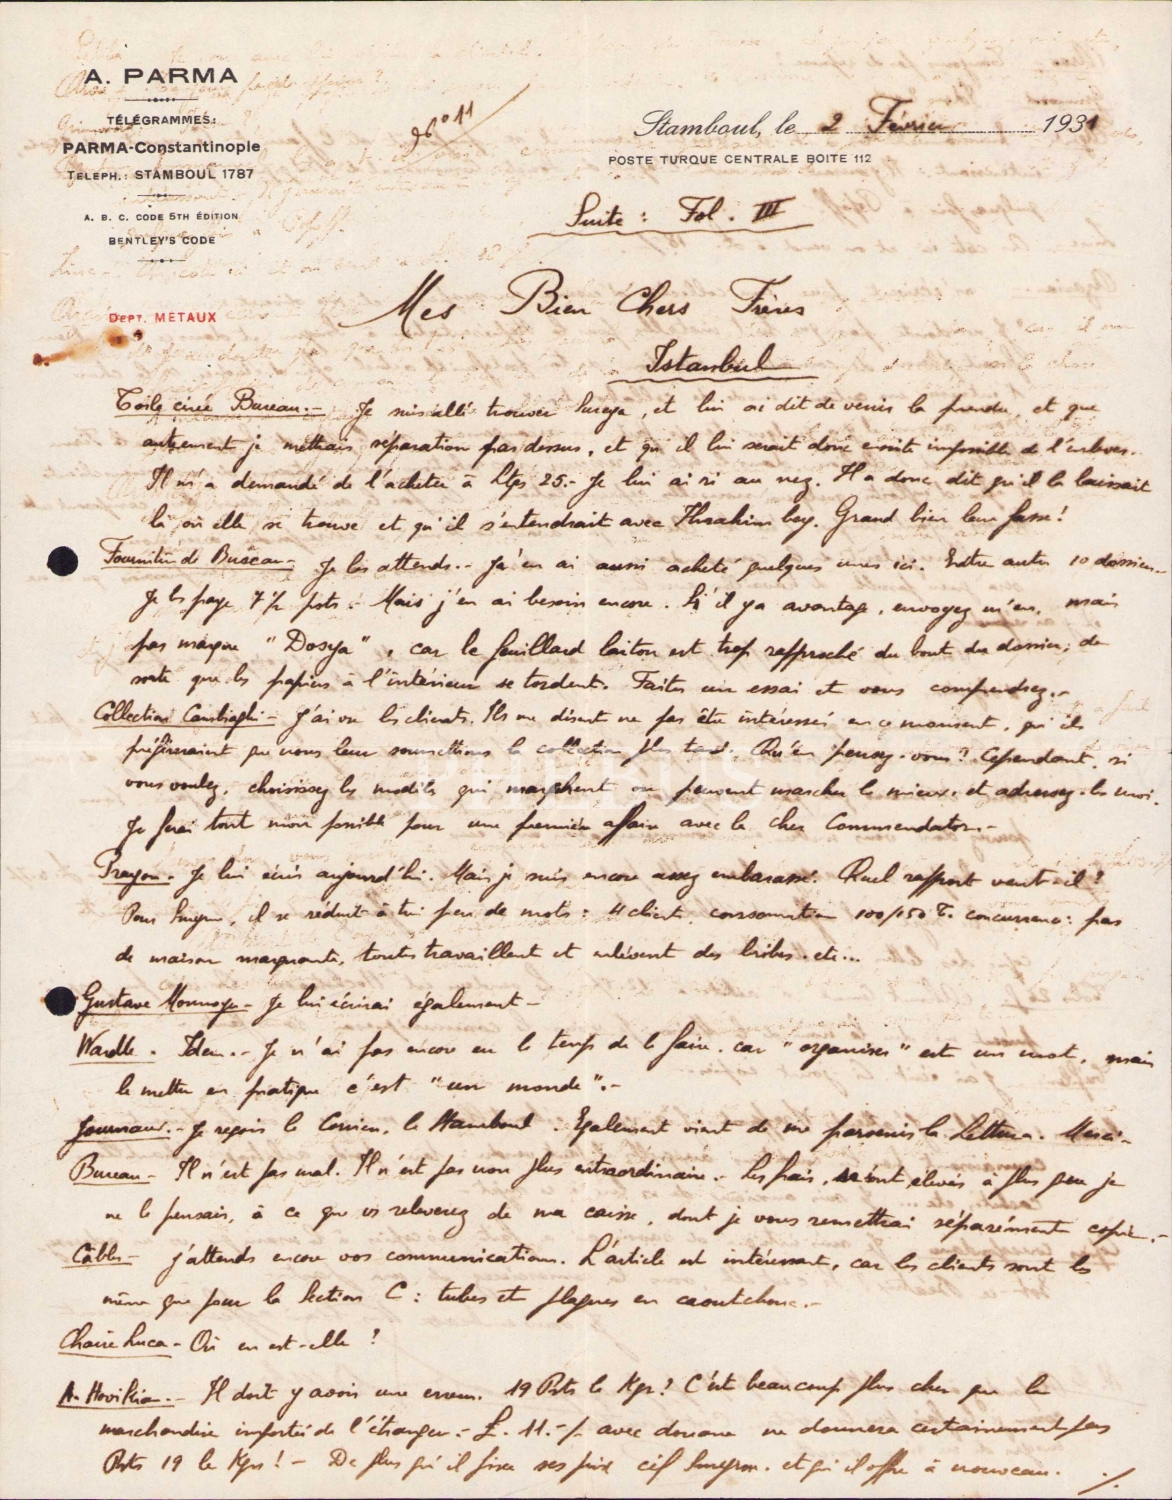 A. PARMA
TÉLÉGRAMMES:
PARMA-Constantinople
TELEPH.: STAMBOUL 1787
A. B. C. CODE 5TH ÉDITION
BENTLEY'S CODE
DEPT. METAUX
N° 11
Stamboul, le 2 Février 1931
POSTE TURQUE CENTRALE BOITE 112
Suite : Fol. III
Mes Bien Chers Frères
Istanbul
Toile cirée Bureau.- Je suis allé trouver Sureya, et lui ai dit de venir la prendre, et que
autrement je mettrais réparation par dessus, et qu'il lui serait donc ensuite impossible de l'enlever.
Il m'a demandé de l'acheter à Ltqs 25.- Je lui ai ri au nez. Il a donc dit qu'il la laissait
là où elle se trouve et qu'il s'entendrait avec Ibrahim bey. Grand bien leur fasse!
Fourniture de Bureau- Je les attends.- J'en ai aussi acheté quelques unes ici. Entre autre 10 dossiers.-
Je les paye 7½ psts.- Mais j'en ai besoin encore. S'il y a avantage, envoyez m'en, mais
pas marque "Dosya", car le feuillard laiton est trop rapproché du bout du dossier, de
sorte que les papiers à l'intérieur se tordent. Faites un essai et vous comprendrez.-
Collection Cambiaghi- J'ai vu les clients. Ils me disent ne pas être intéressés en ce moment, qu'ils
préféreraient que nous leur soumettions la collection plus tard. Qu'en pensez-vous? Cependant, si
vous voulez, choisissez les modèles qui marchent ou peuvent marcher le mieux, et adressez-les moi.
Je ferai tout mon possible pour une première affaire avec le cher Commendatore.-
Prayon- Je lui écris aujourd'hui. Mais je suis encore assez embarassé. Quel rapport veut-il?
Pour Smyrne, il se réduit à très peu de mots: 4 client, consommation 100/150 T. concurrence: pas
de maison marquante, toutes travaillent et enlèvent des bribes. etc...
Gustave - Je lui écrirai également-
Wardle. Idem.- Je n'ai pas encore eu le temps de le faire, car "organiser" est un mot, mais
le mettre en pratique c'est "un monde".-
Journaux.- Je reçois le Corriere, le Stamboul. Egalement vient de me parvenir la Lettura. Merci-
Bureau- Il n'est pas mal. Il n'est pas non plus extraordinaire.- Les frais, seront élevés à plus que je
ne le pensais, à ce que vs releverez de ma caisse, dont je vous remettrai séparément copie.-
Câbles- J'attends encore vos communications. L'article est intéressant, car les clients sont les
même que pour la Section C: tubes et plaques en caoutchouc.-
Chaire Luca- Où en est-elle?
A. Hovikian.- Il doit y avoir une erreur. 19 Psts le Kgr? C'est beaucoup plus cher que la
marchandise importée de l'étranger.- £. 11.-/- avec douane ne donnera certainement pas
Psts 19 le Kgr! - De plus qu'il fixe ses prix cif Smyrne. et qu'il offre à nouveau. ./.